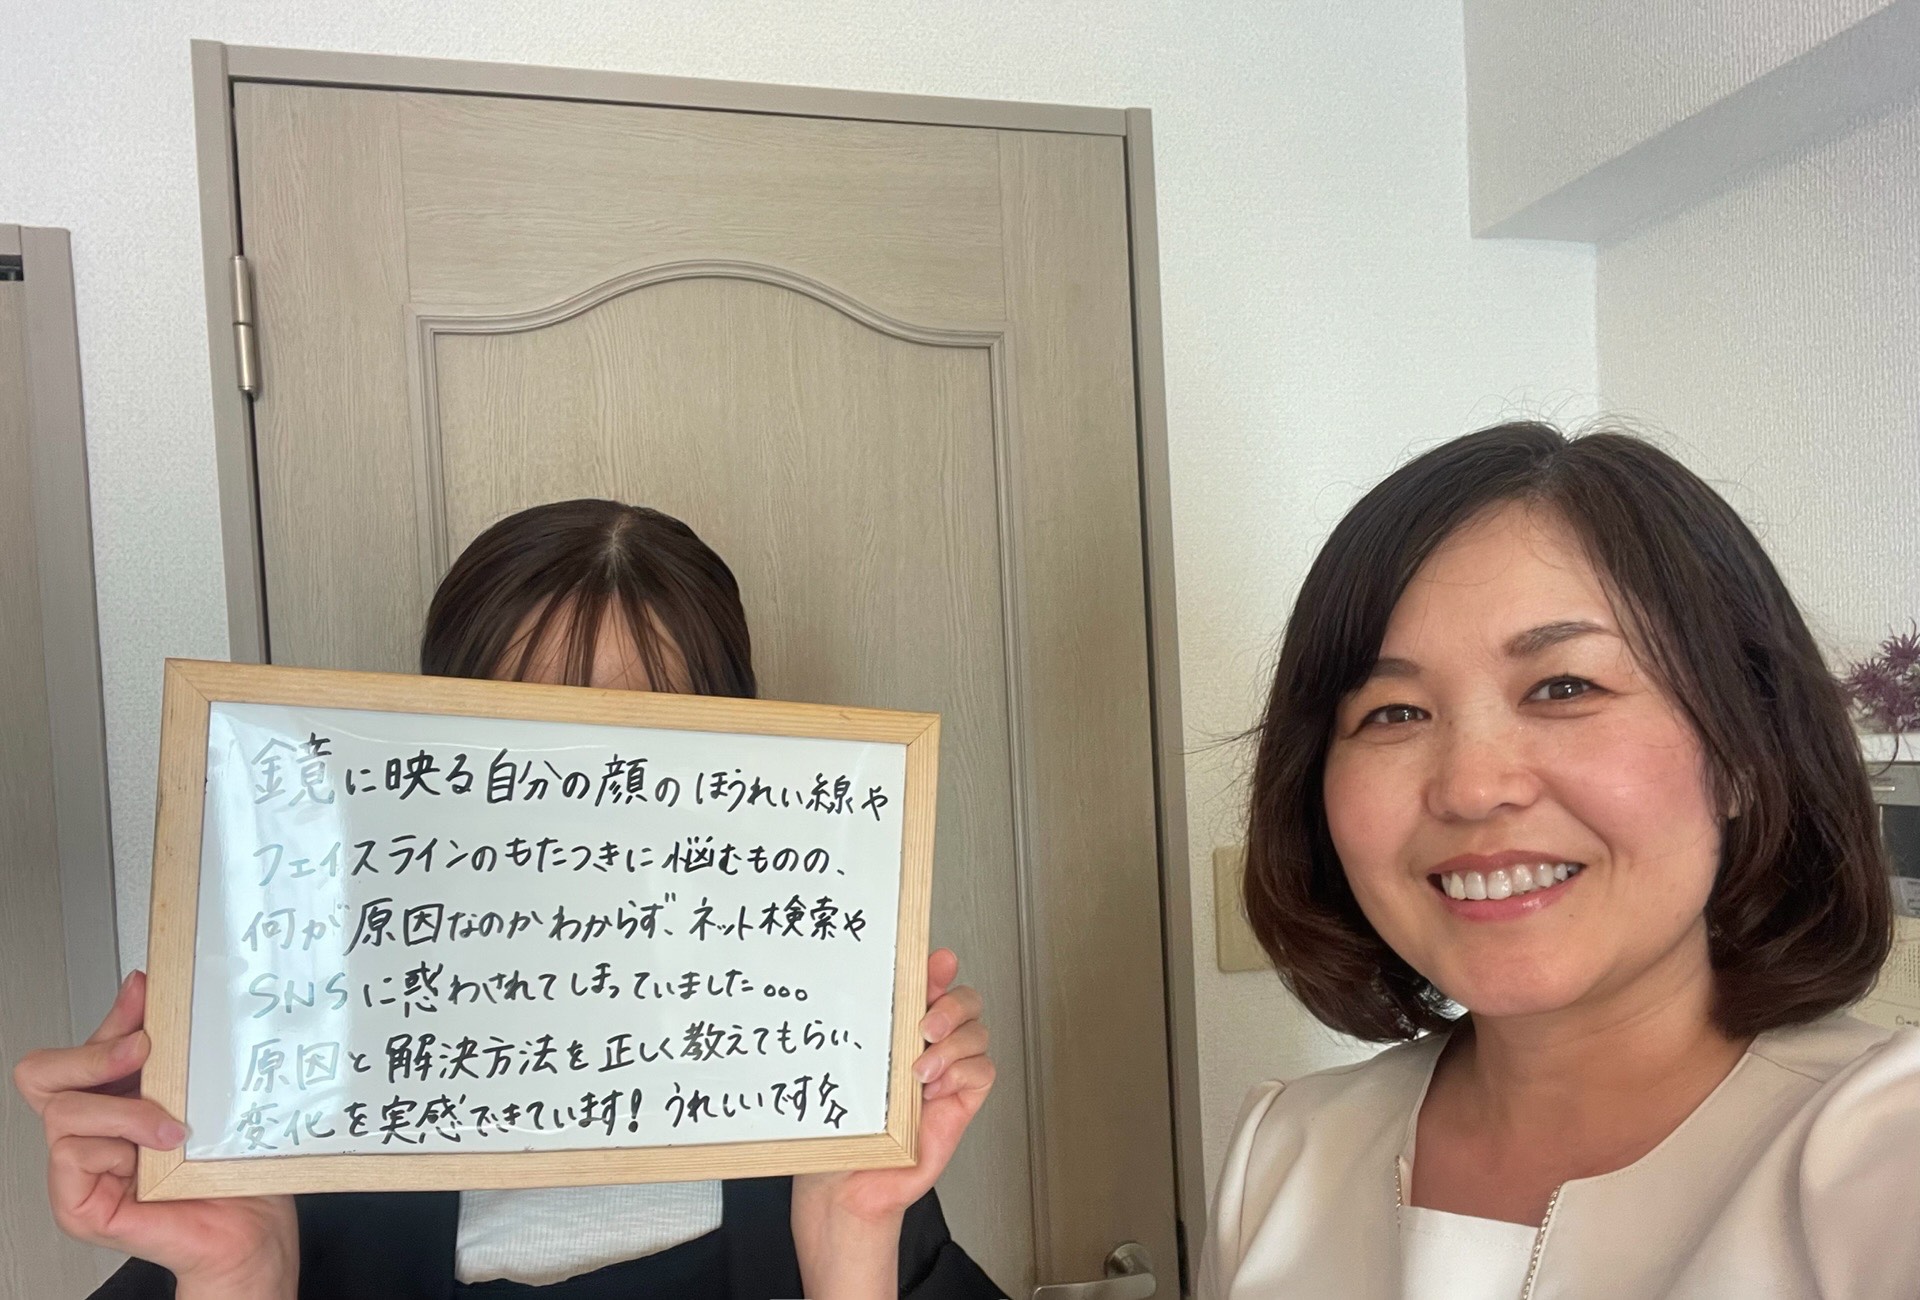 鏡に映る自分の顔のほうれい線や
フェイスラインのもたつきに悩むものの、
何が原因なのかわからず、ネット検索や
SNSに惑わされてしまっていました。。。
原因と解決方法を正しく教えてもらい、
変化を実感できています!うれしいです